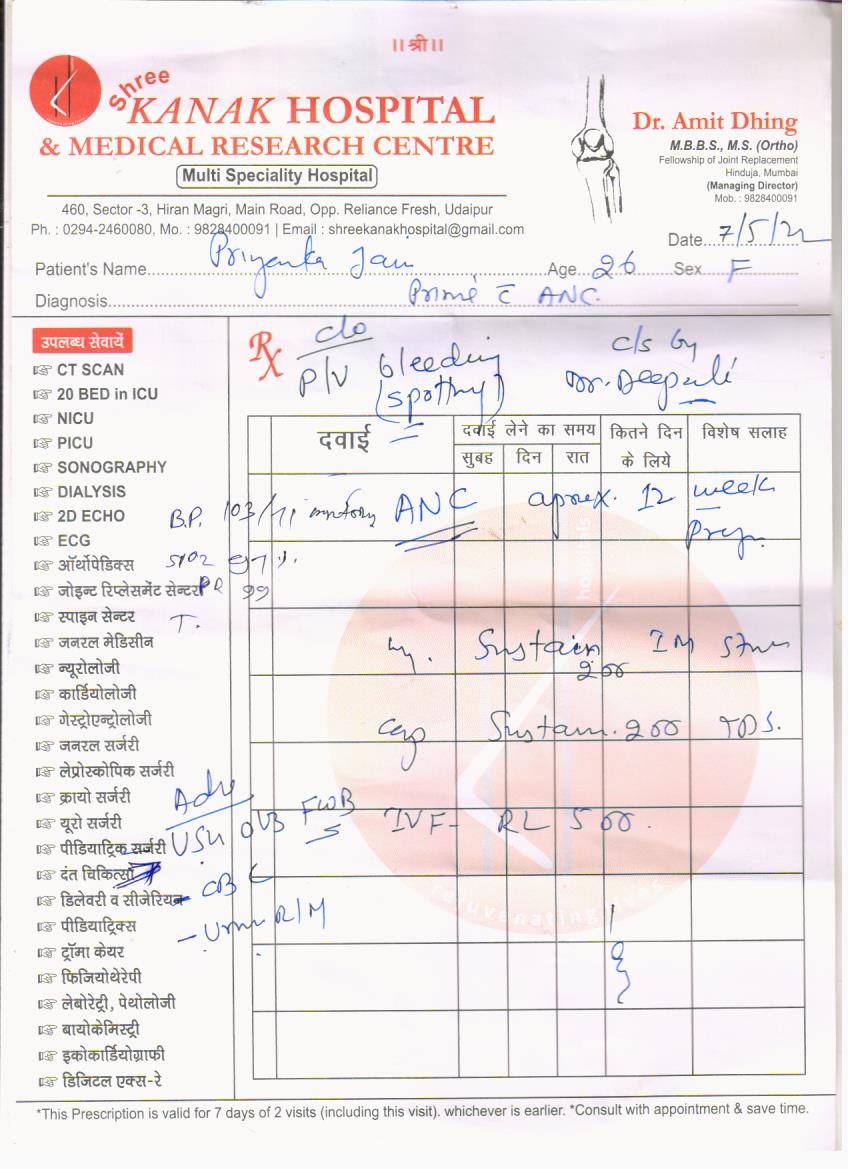 ।। श्री ।।
Shree
KANAK HOSPITAL
& MEDICAL RESEARCH CENTRE
Multi Speciality Hospital
460, Sector -3, Hiran Magri, Main Road, Opp. Reliance Fresh, Udaipur
Ph. : 0294-2460080, Mo. : 9828400091 | Email : shreekanakhospital@gmail.com
Dr. Amit Dhing
M.B.B.S., M.S. (Ortho)
Fellowship of Joint Replacement
Hinduja, Mumbai
(Managing Director)
Mob. : 9828400091
Date... 7/5/22
Patient's Name... Priyanka Jain Age... 26 Sex F
Diagnosis... Prime c̄ ANC.
उपलब्ध सेवायें
CT SCAN
20 BED in ICU
NICU
PICU
SONOGRAPHY
DIALYSIS
2D ECHO
ECG
ऑर्थोपेडिक्स
जोइन्ट रिप्लेसमेंट सेन्टर
स्पाइन सेन्टर
जनरल मेडिसीन
न्यूरोलोजी
कार्डियोलोजी
गेस्ट्रोएन्ट्रोलोजी
जनरल सर्जरी
लेप्रोस्कोपिक सर्जरी
क्रायो सर्जरी
यूरो सर्जरी
पीडियाट्रिक सर्जरी
दंत चिकित्सा
डिलेवरी व सीजेरियन
पीडियाट्रिक्स
ट्रॉमा केयर
फिजियोथेरेपी
लेबोरेट्री, पेथोलोजी
बायोकेमिस्ट्री
इकोकार्डियोग्राफी
डिजिटल एक्स-रे
Rx
c/o
P/V bleeding
(spotting)
c/s by
Dr. Deepali
दवाई
दवाई लेने का समय
सुबह दिन रात
कितने दिन के लिये
विशेष सलाह
B.P. 103/71
ANC aprox. 12 week
Preg.
SPO2 97%.
PR 99
T.
Inj. Sustain 200 IM Stat
Cap Sustain 200 TDS.
Adv
USG OVB FWB
IVF - RL 500.
- CBC
- Urine R/M
hospitals
rejuvenating lives
*This Prescription is valid for 7 days of 2 visits (including this visit). whichever is earlier. *Consult with appointment & save time.